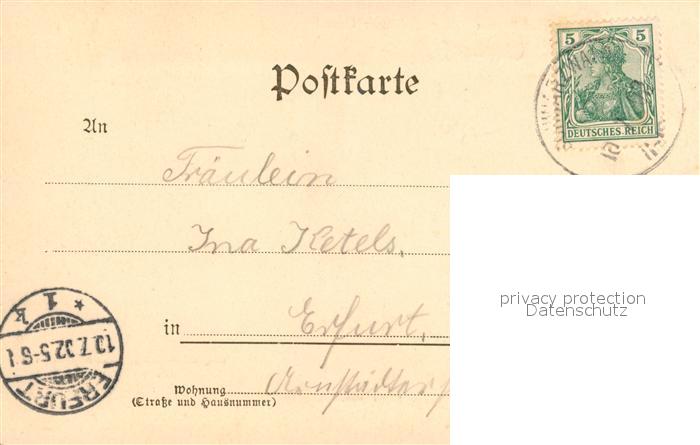 Postkarte
5 5
DEUTSCHES REICH
An
Fräulein
Ina Ketels,
privacy protection
Datenschutz
in Erfurt,
Wohnung
(Straße und Hausnummer)
Arnstädter
* 1 k
10.7.02.5-6
ERFURT